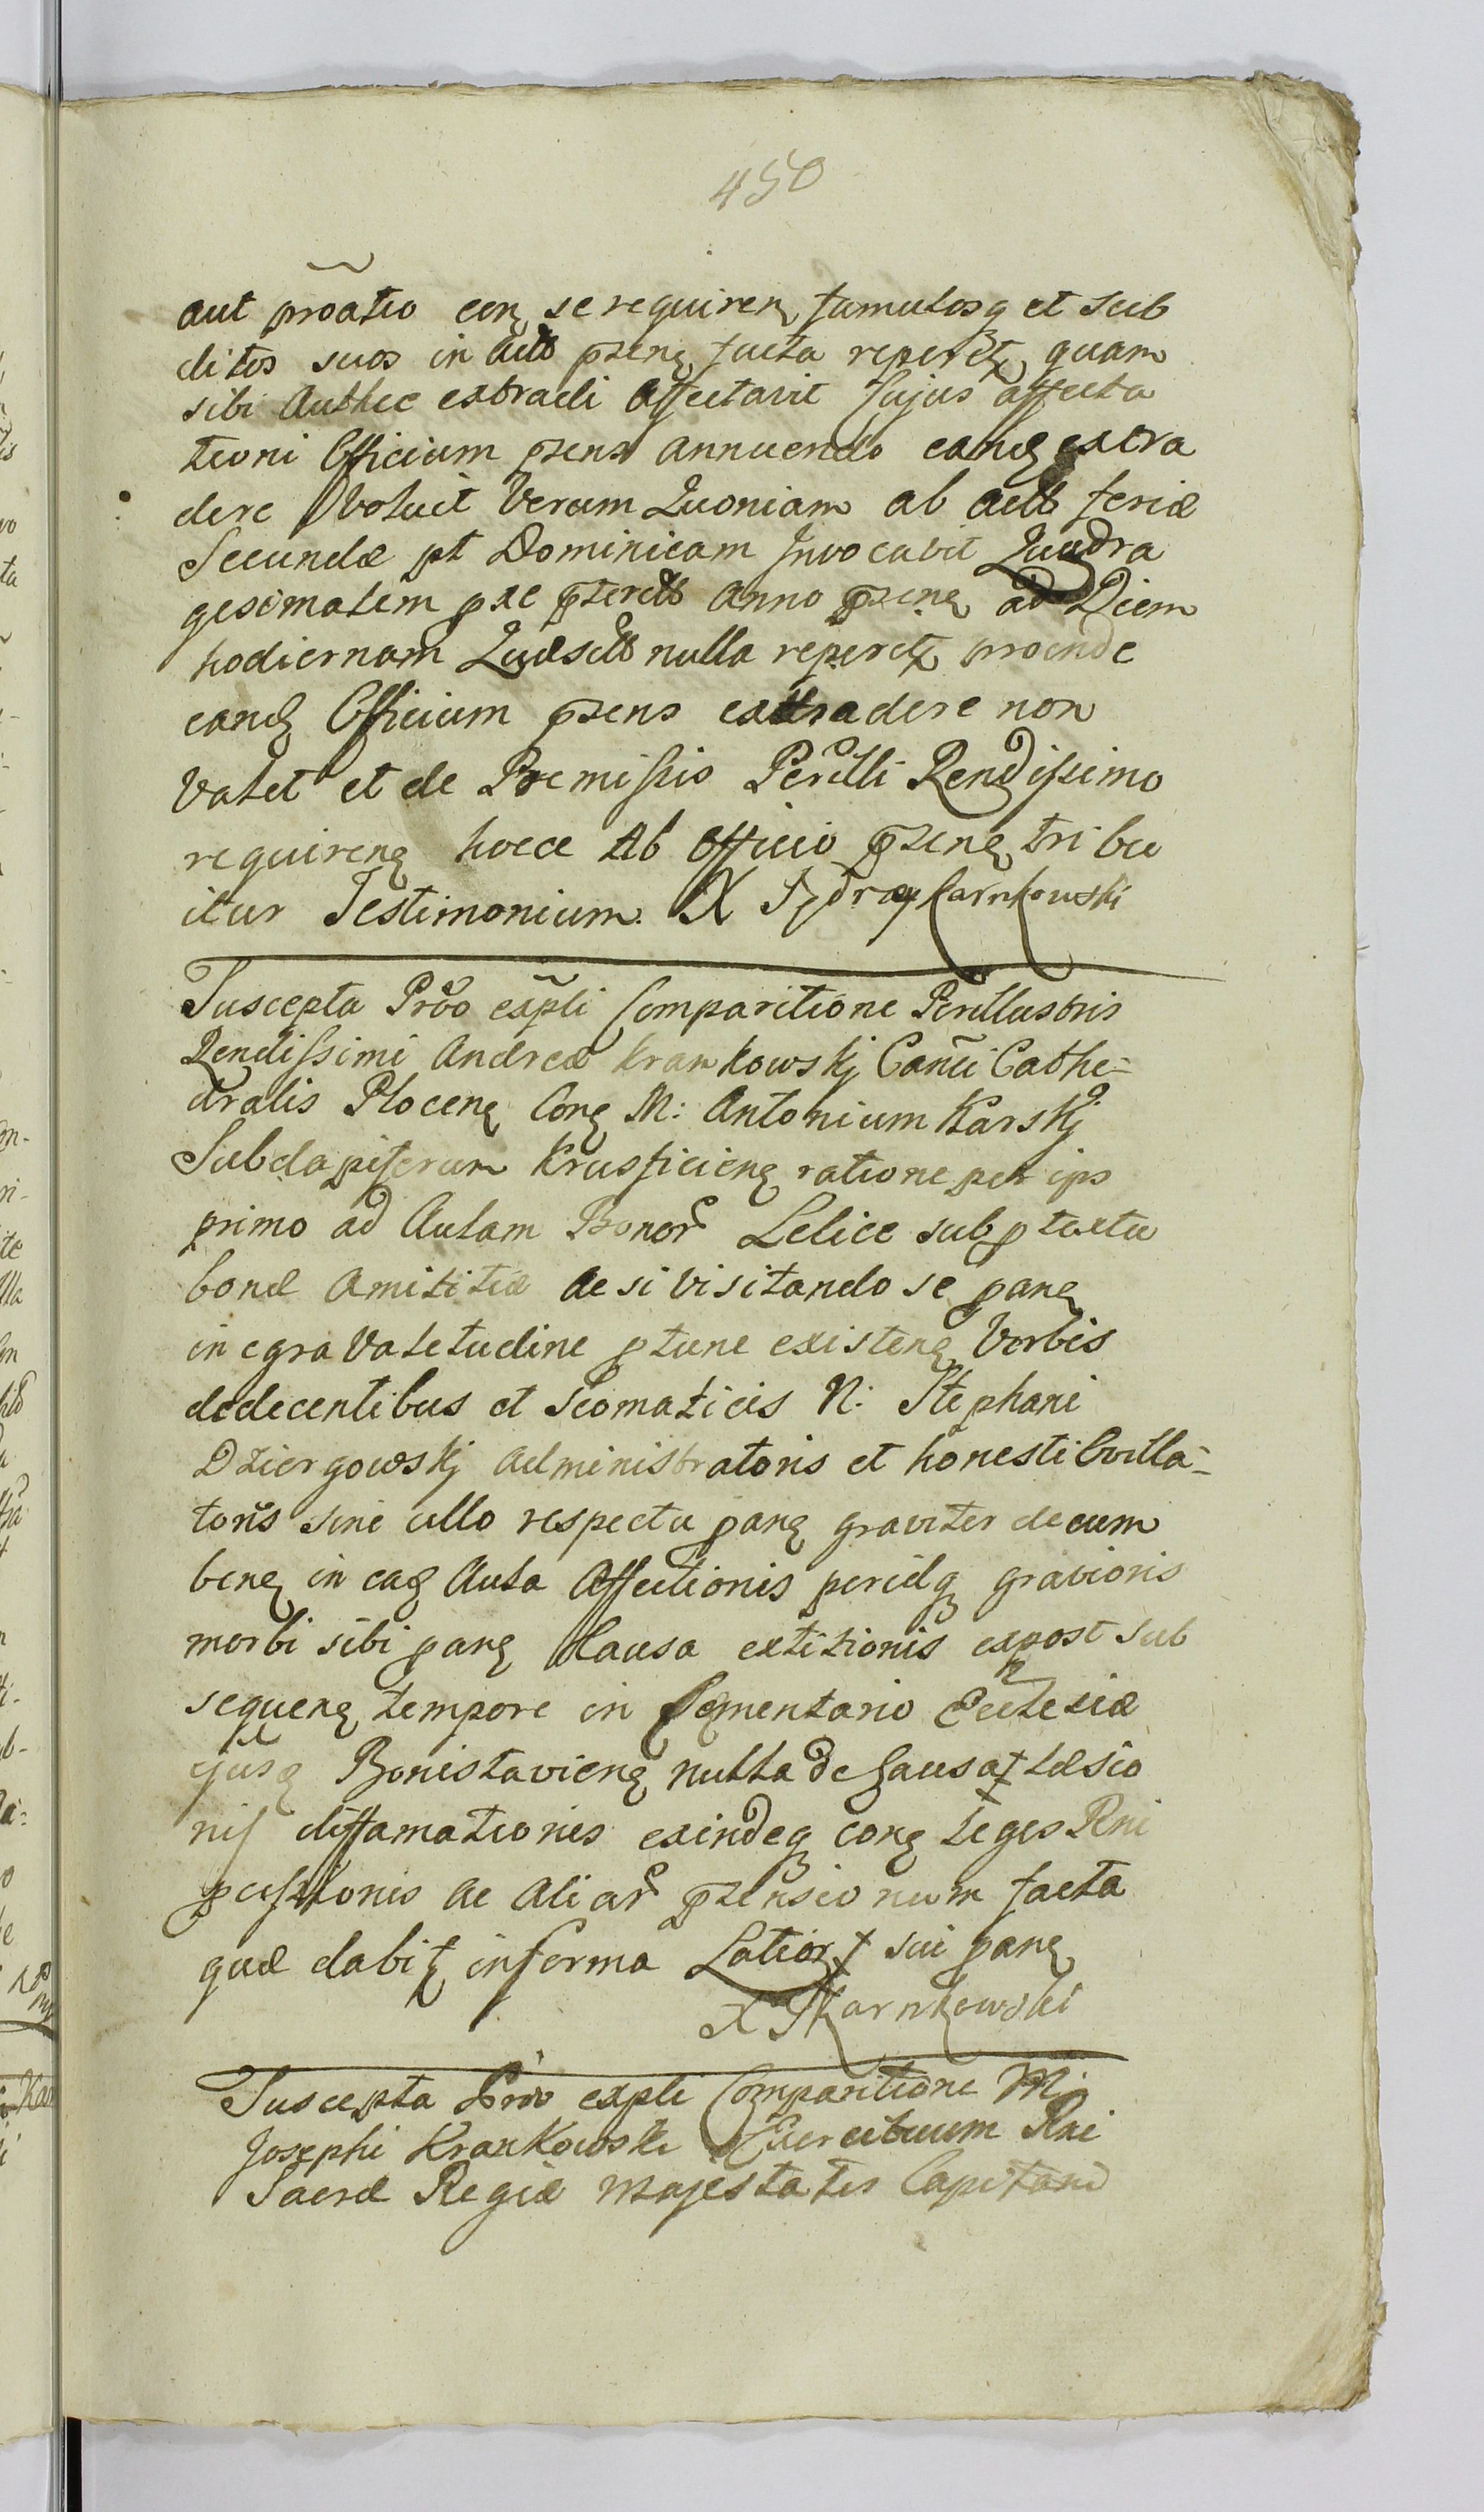 450
aut proatio eor se requiren famulosq et sub
ditos suos in actis psenq facta reperetr quam
sibi Authce extradi affectavit Cujus affecta
tioni Officium psens annuendo eandq extra
dere voluit Verum Quoniam ab actis feriæ
Secundæ pt Dominicam Invocavit Quadra
gesimalem pxe pteritis Anno psenq ad Diem
hodiernam nulla reperetr proinde
eandq Officium psens extradere non
valet et de Premissis Perilli Rendissimo
requirenq hocce Ab Officio psenq tribu
itur Testimonium. X Karnkowski
Suscepta Prvo expli Comparitione Perillustris
Rendissimi Andreæ Krankowskj Canci Cathe-
dralis Plocenq Conq M: Antonium Karskj
Subdapiferum Krusficienq ratione per ips
primo ad Aulam Bonor Lelice sub ptextu
bonæ Amicitiæ ac si visitando se panq
in egra Valetudine ptunc existenq Verbis
dedecentibus et scomaticis N: Stephani
Dziergowskj Administratoris et honesti Civilla-
toris sine ullo respectu panq graviter decum
benq in eaq Aula Affectionis periclq gravioris
morbi sibi panq Causa extitionis expost sub
sequenq tempore in Cementario Ecclesiæ
ejusq Bonislavienq nulla de Causa læsio
nis diffamationis exindeq conq leges Rni
pcussionis ac aliar ptensionum facta
quæ dabitr in forma Latiori sui panq
X Karnkowski
Suscepta Prvo expli Comparitione M:
Josephi Krankowski Exercituum Rni
Sacræ Regiæ Majestatis Capitanei